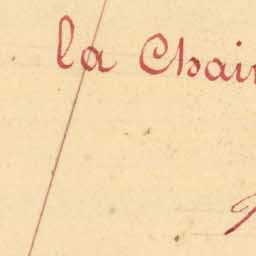 la Chai